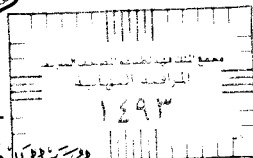 مجمع الملك فهد لطباعة المصحف الشريف
المراقبة النهائية
١٤٩٣